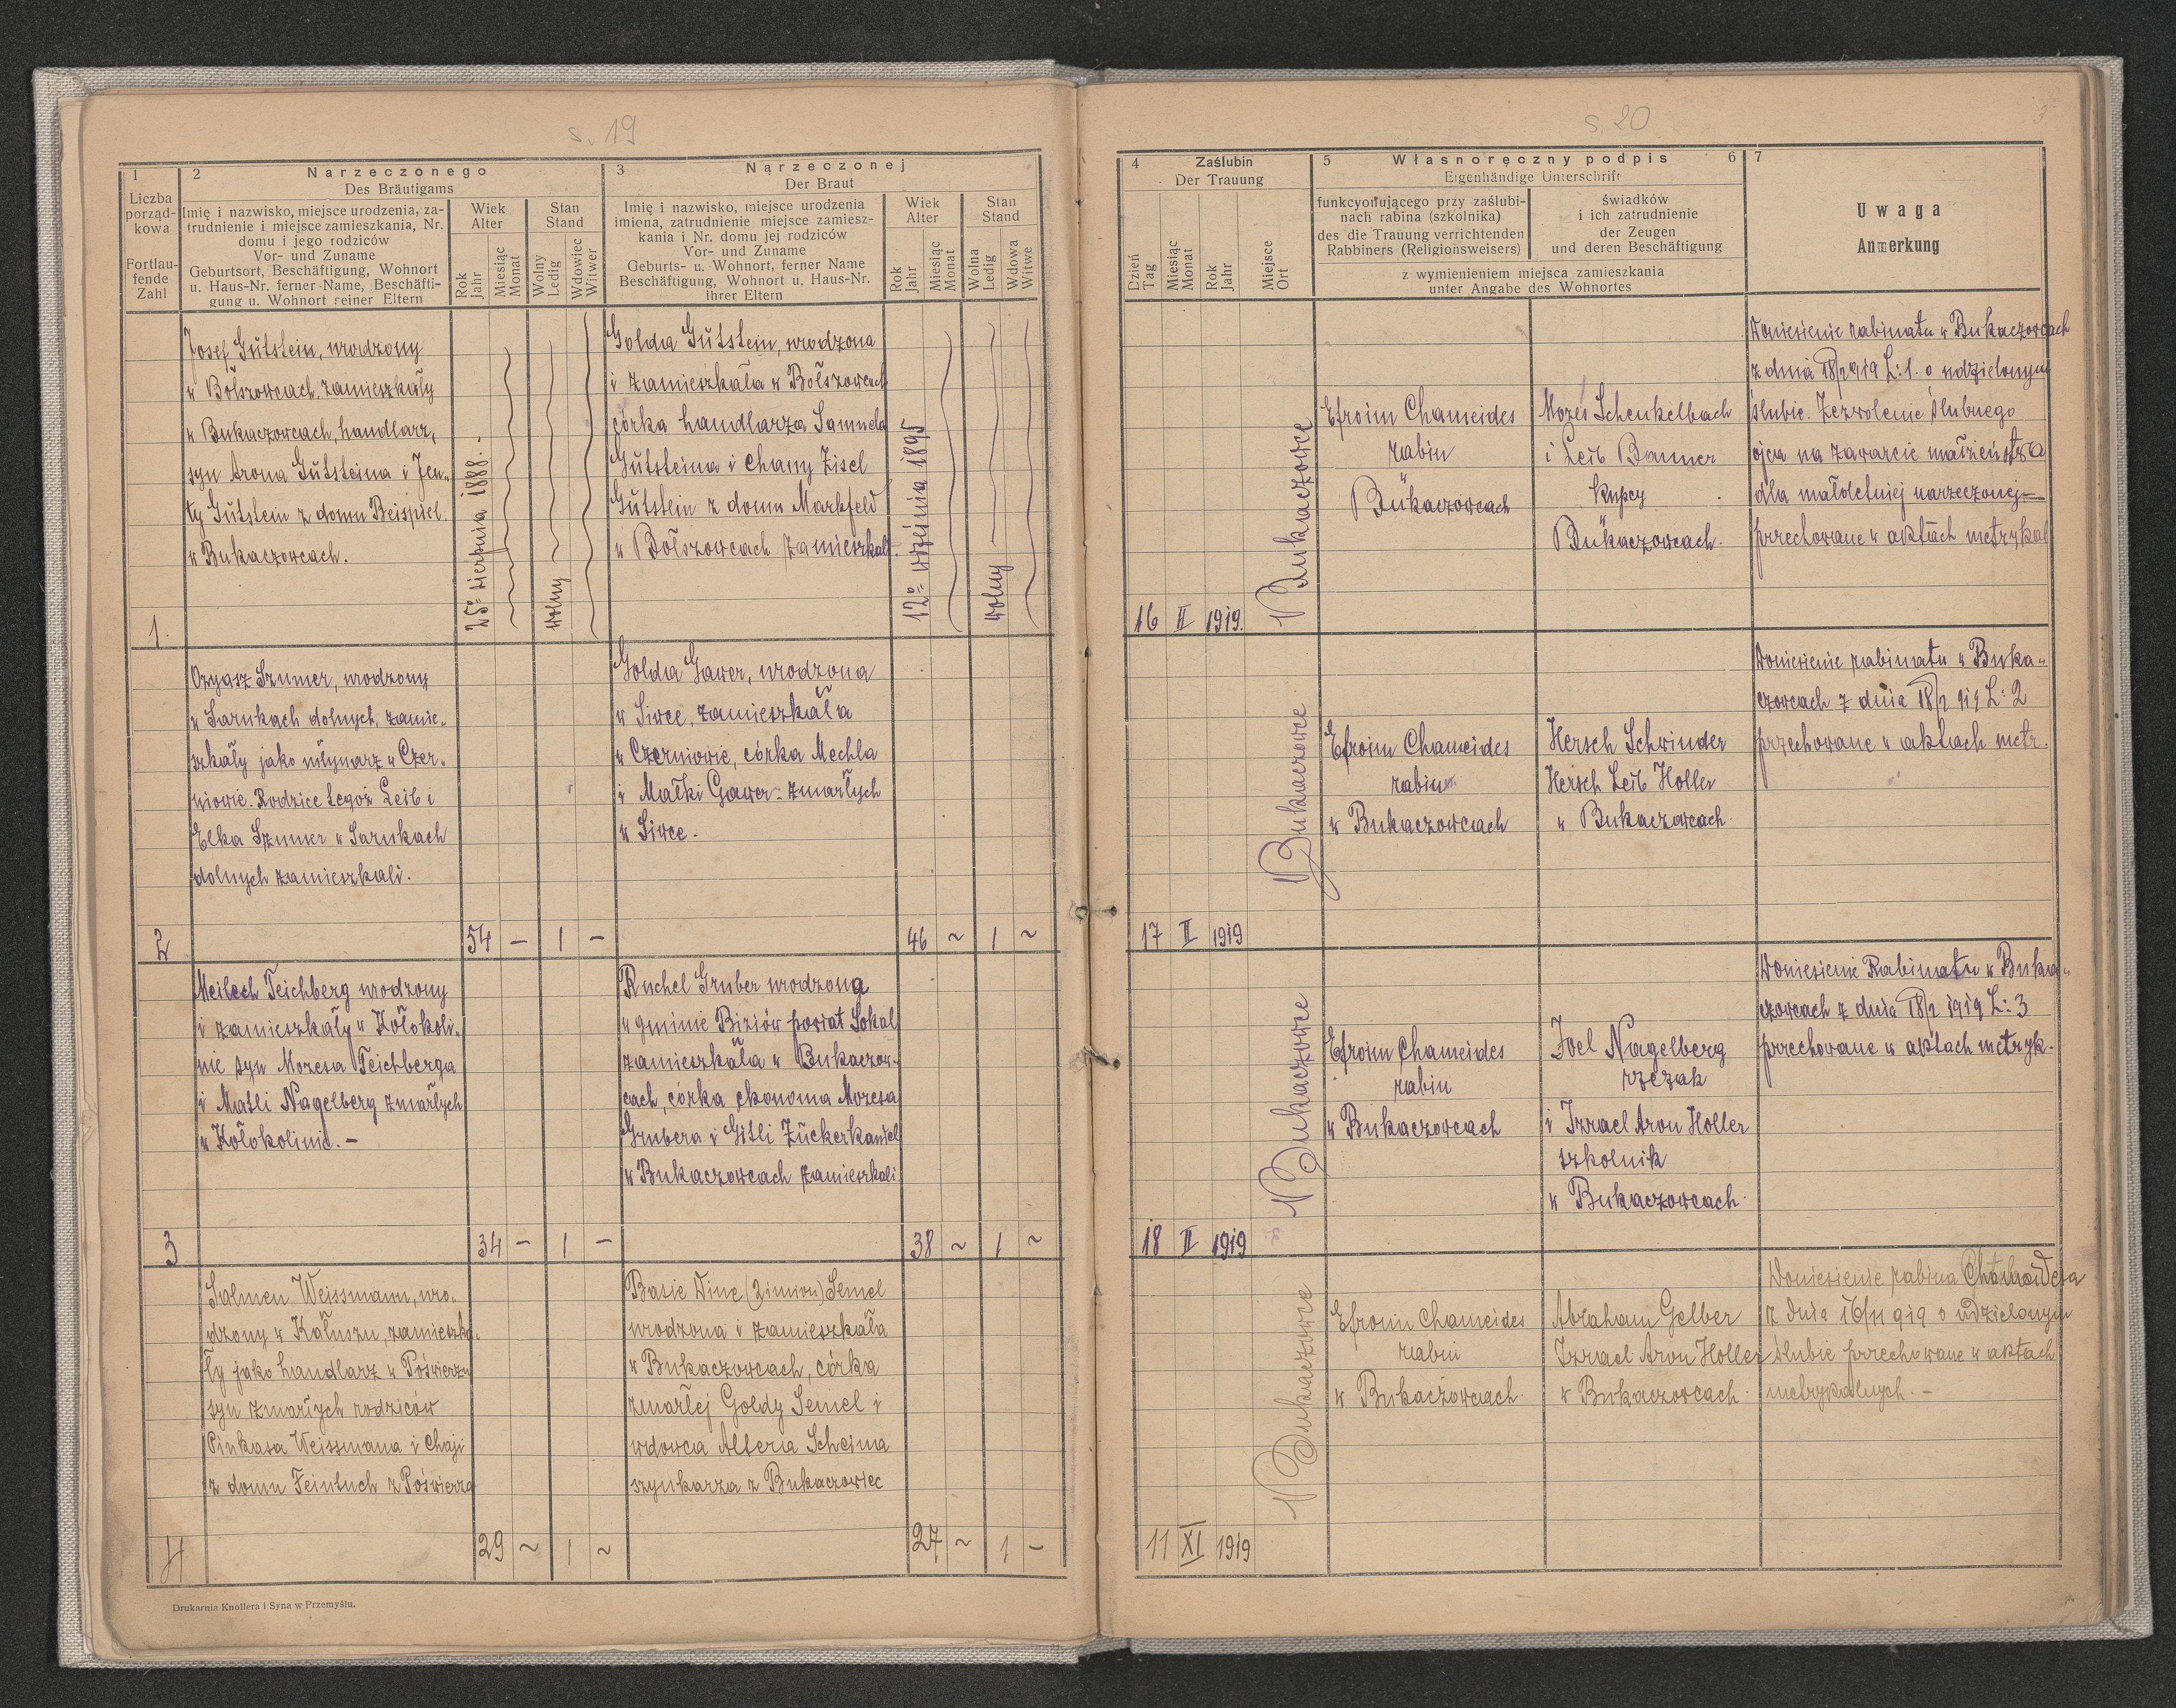 s. 19
1
Liczba
porząd-
kowa
Fortlau-
fende
Zahl
2
Narzeczonego
Des Bräutigams
Imię i nazwisko, miejsce urodzenia, za-
trudnienie i miejsce zamieszkania, Nr.
domu i jego rodziców
Vor- und Zuname
Geburtsort, Beschäftigung, Wohnort
u. Haus-Nr. ferner Name, Beschäfti-
gung u. Wohnort seiner Eltern
Wiek
Alter
Rok
Jahr
Miesiąc
Monat
Stan
Stand
Wolny
Ledig
Wdowiec
Witwer
3
Narzeczonej
Der Braut
Imię i nazwisko, miejsce urodzenia
imiona, zatrudnienie miejsce zamiesz-
kania i Nr. domu jej rodziców
Vor- und Zuname
Geburts- u. Wohnort, ferner Name
Beschäftigung, Wohnort u. Haus-Nr.
ihrer Eltern
Wiek
Alter
Rok
Jahr
Miesiąc
Monat
Stan
Stand
Wolna
Ledig
Wdowa
Witwe
1.
Josef Gutstein, urodzony
w Bołszowcach, zamieszkały
w Bukaczowcach, handlarz,
syn Arona Gutsteina i Jen-
ty Gutstein z domu Beispiel
w Bukaczowcach.
25º sierpnia 1888.
wolny
Golda Gutstein, urodzona
i zamieszkała w Bołszowcach
córka handlarza Samuela
Gutsteina i Chany Zisel
Gutstein z domu Markfeld
w Bołszowcach zamieszkał.
12º września 1895
wolny
2
Ozyasz Szumer, urodzony
w Sarnkach dolnych, zamie-
szkały jako młynarz w Czer-
niowie. Rodzice tegoż Leib i
Elka Szumer w Sarnkach
dolnych zamieszkali.
54 – 1 –
Golda Gawer, urodzona
w Siwce, zamieszkała
w Czerniowie, córka Mechla
i Małki Gawer - zmarłych
w Siwce.
46 ~ 1 ~
3
Meilech Teichberg urodzony
i zamieszkały w Kołokoli-
nie syn Mozesa Teichberga
i Matli Nagelberg zmarłych
w Kołokolinie. –
34 – 1 –
Ruchel Gruber urodzona
w gminie Biziów powiat Sokal
zamieszkała w Bukaczow-
cach, córka ekonoma Mozesa
Grubera i Gitli Zuckerkandel
w Bukaczowcach zamieszkali
38 ~ 1 ~
4
Salmen Weissmann, uro-
dzony w Kałuszu, zamieszka-
ły jako handlarz w Poświerzu
syn zmarłych rodziców
Pinkasa Weissmana i Chaji
z domu Feintuch z Poświerza
29 ~ 1 ~
Basie Dine Semel
urodzona i zamieszkała
w Bukaczowcach, córka
zmarłej Goldy Semel i
wdowca Altera Scheina
szynkarza z Bukaczowiec
27 ~ 1 –
Drukarnia Knollera i Syna w Przemyślu.
s. 20
3
4
Zaślubin
Der Trauung
Dzień
Tag
Miesiąc
Monat
Rok
Jahr
Miejsce
Ort
5 Własnoręczny podpis 6
Eigenhändige Unterschrift
funkcyonującego przy zaślubi-
nach rabina (szkolnika)
des die Trauung verrichtenden
Rabbiners (Religionsweisers)
świadków
i ich zatrudnienie
der Zeugen
und deren Beschäftigung
z wymienieniem miejsca zamieszkania
unter Angabe des Wohnortes
7
Uwaga
Anmerkung
16 II 1919.
Bukaczowce
Efroim Chameides
rabin
Bukaczowcach
Mozes Schenkelbach
i Leib Banner
kupcy
Bukaczowcach.
Doniesienie rabinatu w Bukaczowcach
z dnia 18/2 1919 L: 1. o udzielonym
ślubie. Zezwolenie ślubnego
ojca na zawarcie małżeństwa
dla małoletniej narzeczonej –
przechowane w aktach metrykal
17 II 1919
Bukaczowce
Efroim Chameides
rabin
w Bukaczowcach
Hersch Schwinder
Hersch Leib Holler
w Bukaczowcach
Doniesienie rabinatu w Buka-
czowcach z dnia 18/2 919 L: 2
przechowane w aktach metr.
18 II 1919
Bukaczowce
Efroim Chameides
rabin
w Bukaczowcach
Joel Nagelberg
rzezak
i Izrael Aron Holler
szkolnik
w Bukaczowcach.
Doniesienie Rabinatu w Buka-
czowcach z dnia 18/2 1919 L: 3
przechowane w aktach metryk.
11 XI 1919
Bukaczowce
Efroim Chameides
rabin
w Bukaczowcach.
Abraham Gelber
Izrael Aron Holler
w Bukaczowcach.
Doniesienie rabina Chameidesa
z dnia 16/11 919 o udzielonym
ślubie przechowane w aktach
metrykalnych. –